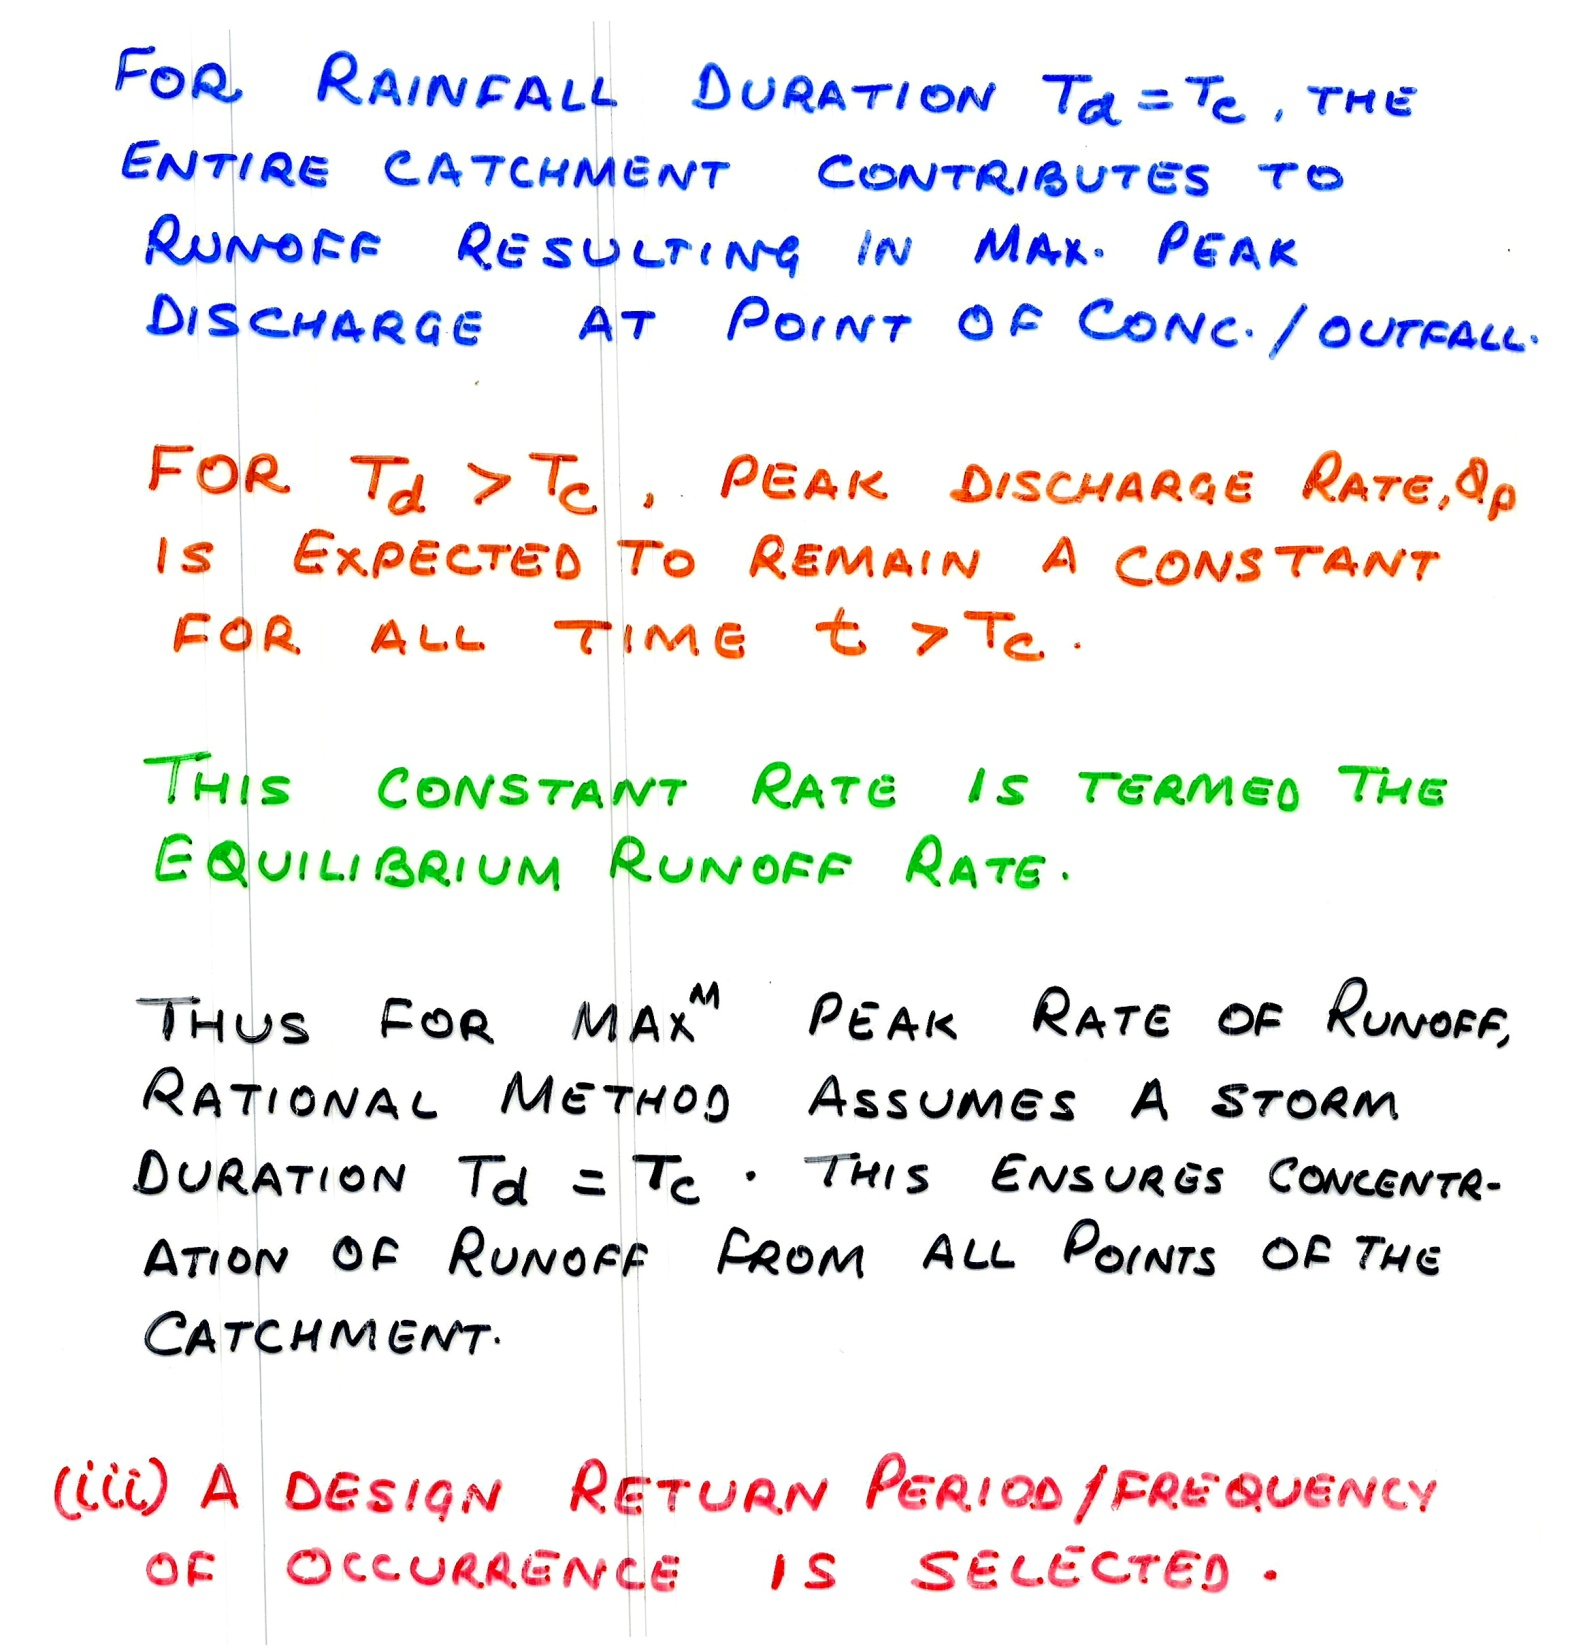 FOR RAINFALL DURATION Td = Tc, THE
ENTIRE CATCHMENT CONTRIBUTES TO
RUNOFF RESULTING IN MAX. PEAK
DISCHARGE AT POINT OF CONC./OUTFALL.
FOR Td > Tc, PEAK DISCHARGE RATE, Qp
IS EXPECTED TO REMAIN A CONSTANT
FOR ALL TIME t > Tc.
THIS CONSTANT RATE IS TERMED THE
EQUILIBRIUM RUNOFF RATE.
THUS FOR MAX^M PEAK RATE OF RUNOFF,
RATIONAL METHOD ASSUMES A STORM
DURATION Td = Tc. THIS ENSURES CONCENTR-
ATION OF RUNOFF FROM ALL POINTS OF THE
CATCHMENT.
(iii) A DESIGN RETURN PERIOD/FREQUENCY
OF OCCURRENCE IS SELECTED.